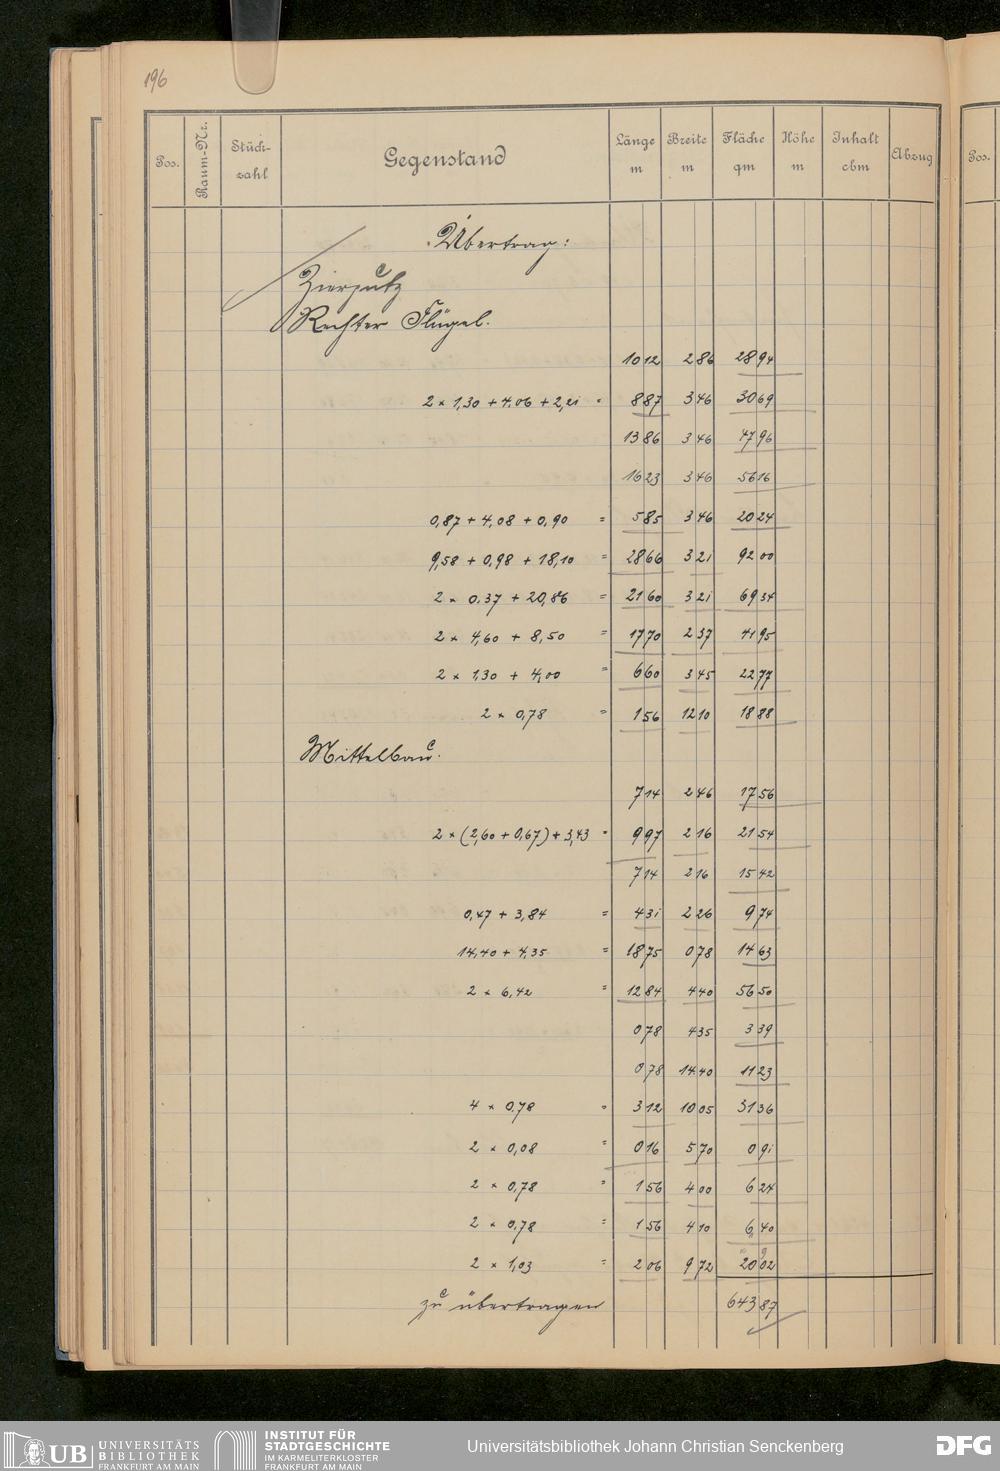 196
Pos. Raum-Nr. Stück-zahl Gegenstand Länge m Breite m Fläche qm Höhe m Inhalt cbm Abzug Pos.
Übertrag:
Zierputz
Rechter Flügel.
10 12 2 86 28 94
2 × 1,30 + 4,06 + 2,21 = 8 87 3 46 30 69
13 86 3 46 47 96
16 23 3 46 56 16
0,87 + 4,08 + 0,90 = 5 85 3 46 20 24
9,58 + 0,98 + 18,10 = 28 66 3 21 92 00
2 × 0,37 + 20,86 = 21 60 3 21 69 34
2 × 4,60 + 8,50 = 17 70 2 37 41 95
2 × 1,30 + 4,00 = 6 60 3 45 22 77
2 × 0,78 = 1 56 12 10 18 88
Mittelbau.
7 14 2 46 17 56
2 × (2,60 + 0,67) + 3,43 = 9 97 2 16 21 54
7 14 2 16 15 42
0,47 + 3,84 = 4 31 2 26 9 74
14,40 + 4,35 = 18 75 0 78 14 63
2 × 6,42 = 12 84 4 40 56 50
0 78 4 35 3 39
0 78 14 40 11 23
4 × 0,78 = 3 12 10 05 31 36
2 × 0,08 = 0 16 5 70 0 91
2 × 0,78 = 1 56 4 00 6 24
2 × 0,78 = 1 56 4 10 6 40
2 × 1,03 = 2 06 9 72 20 02
zu übertragen 643 87
UB UNIVERSITÄTS BIBLIOTHEK FRANKFURT AM MAIN
INSTITUT FÜR STADTGESCHICHTE IM KARMELITERKLOSTER FRANKFURT AM MAIN
Universitätsbibliothek Johann Christian Senckenberg
DFG